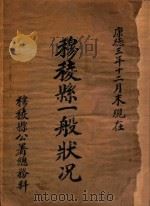 康德三年十二月末現在
穆稜縣一般狀况
穆稜縣公署總務科
www.duxiu.com